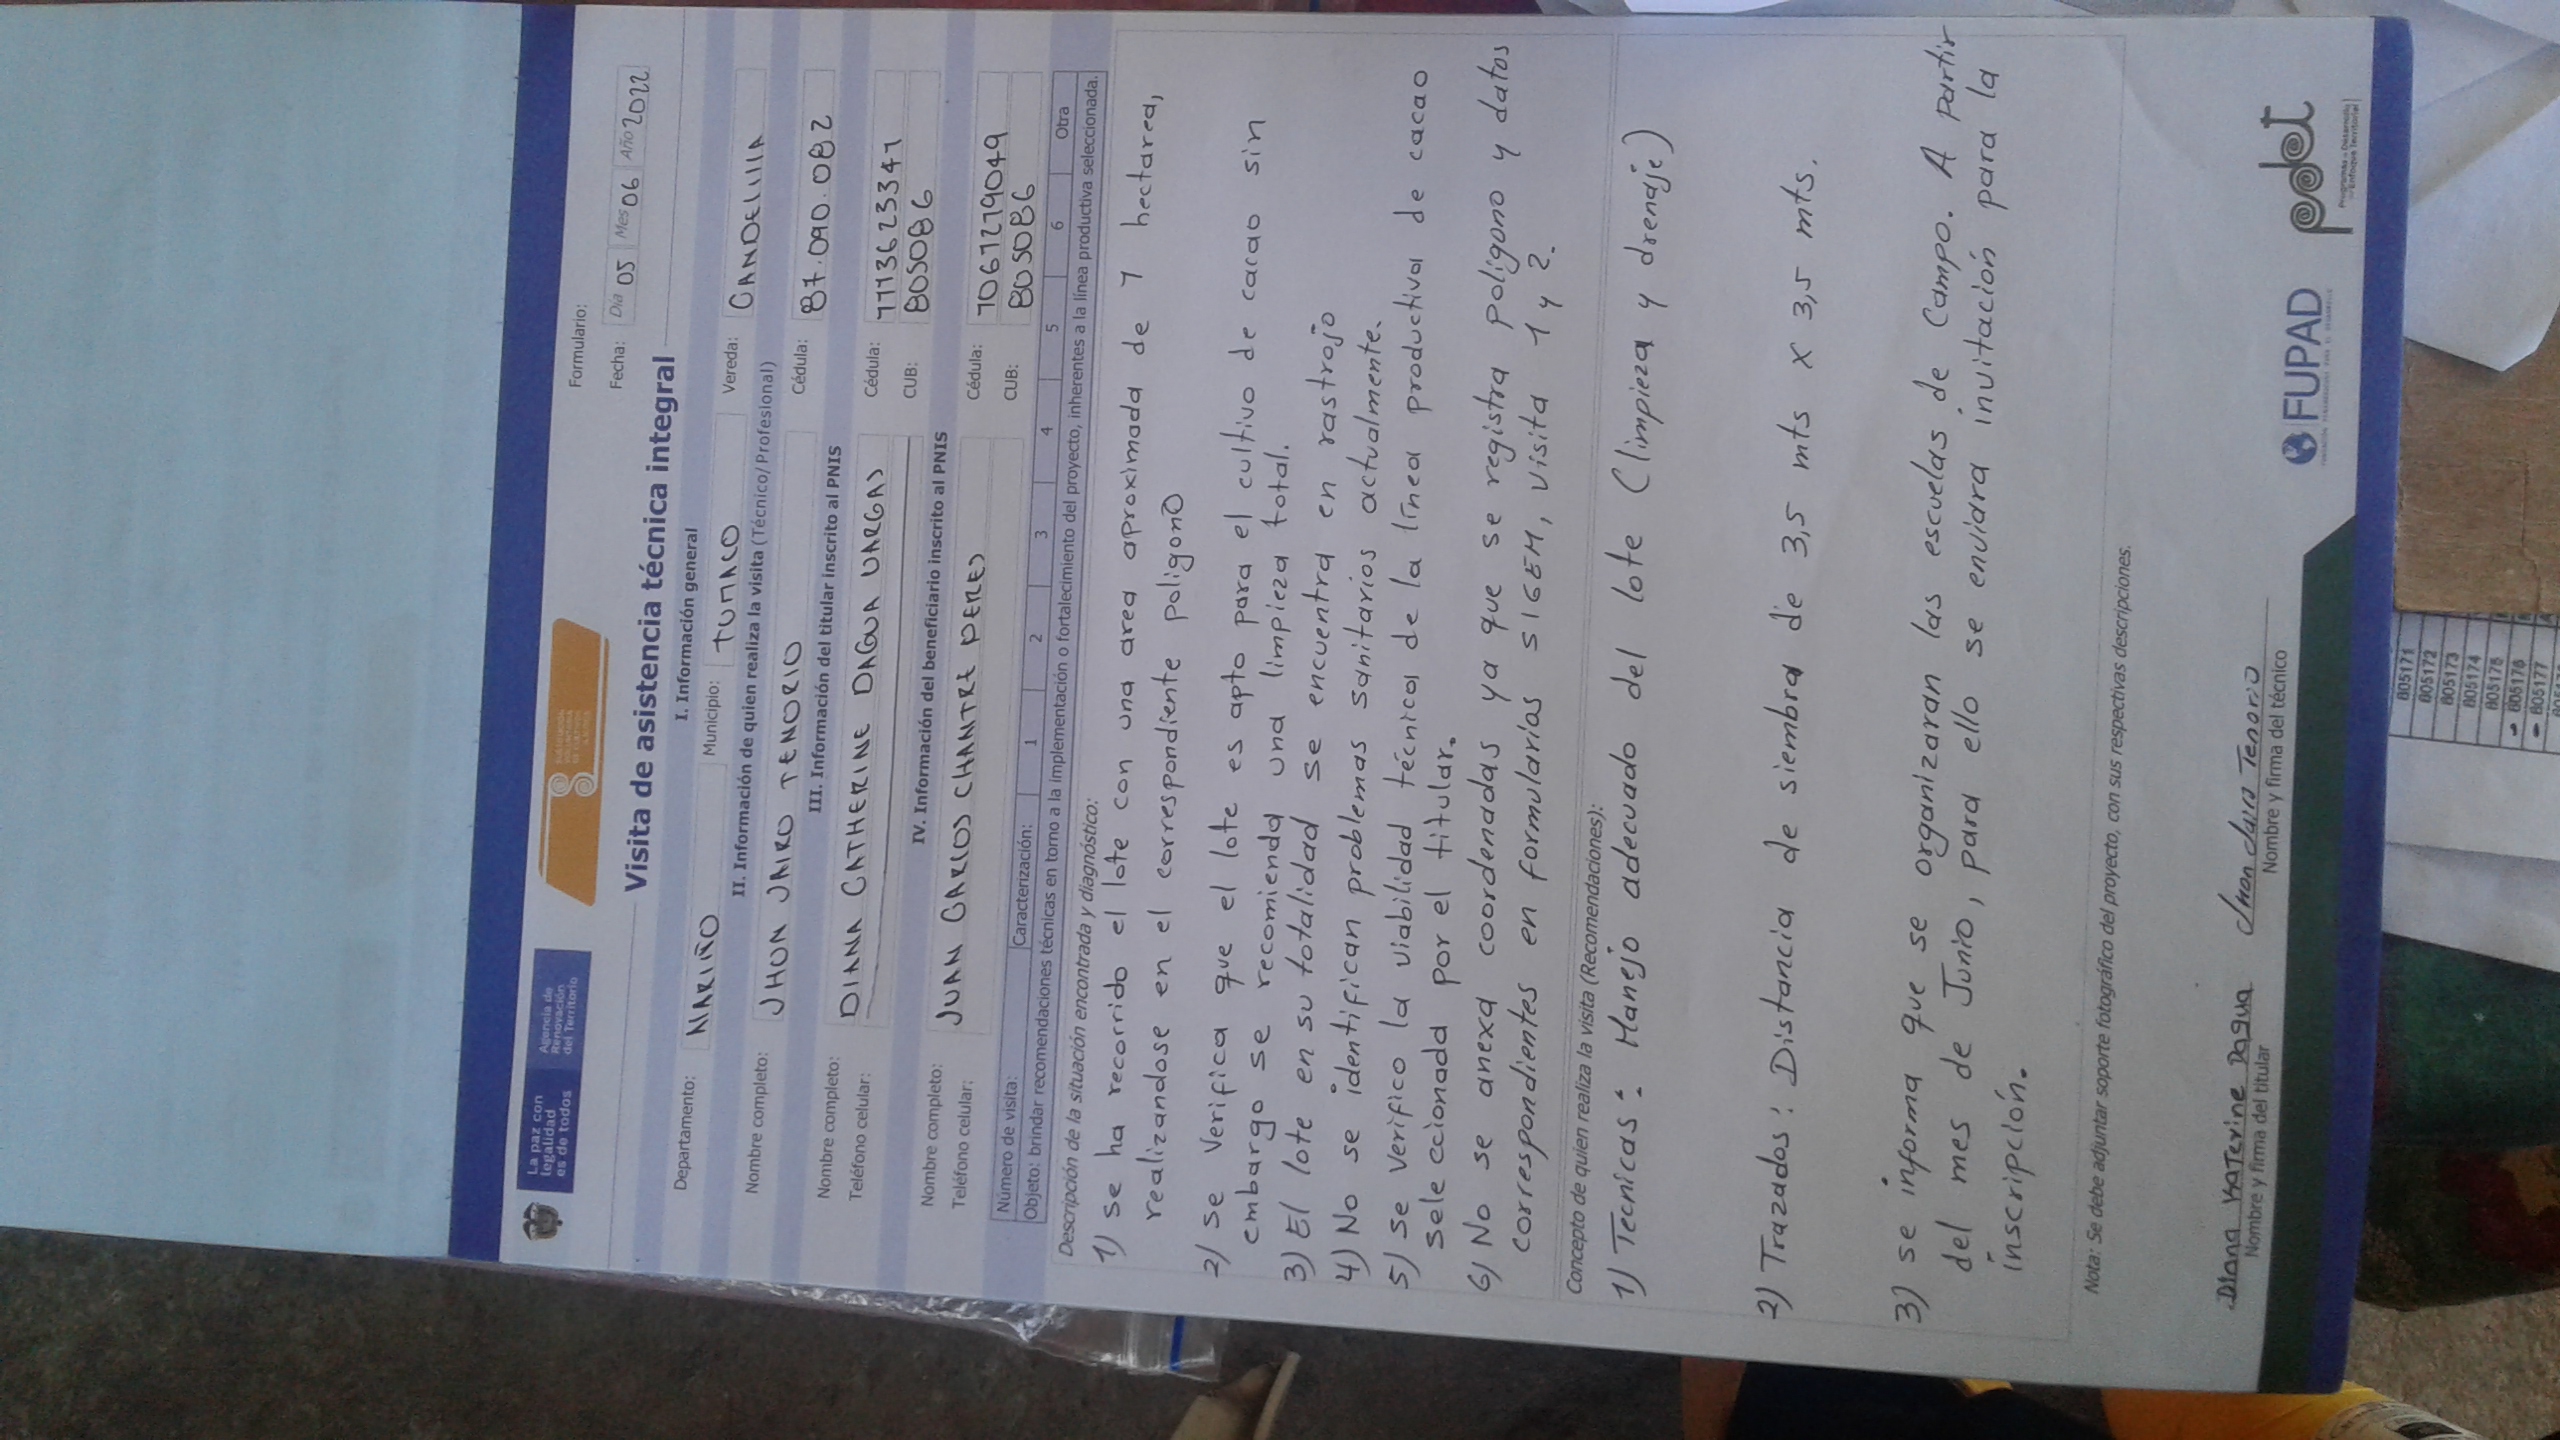 La paz con
legalidad
es de todos
Agencia de
Renovación
del Territorio
Formulario:
Fecha: Día 05 Mes 06 Año 2022
Visita de asistencia técnica integral
I. Información general
Departamento: NARIÑO Municipio: TUMACO Vereda: CANDELILLA
II. Información de quien realiza la visita (Técnico/Profesional)
Nombre completo: JHON JAIRO TENORIO Cédula: 87.090.082
III. Información del titular inscrito al PNIS
Nombre completo: DIANA CATHERINE DAGUA VARGAS Cédula: 1113623341
Teléfono celular: CUB: 805086
IV. Información del beneficiario inscrito al PNIS
Nombre completo: JUAN CARLOS CHANTRE PERES Cédula: 1061219049
Teléfono celular: CUB: 805086
Número de visita: Caracterización: 1 2 3 4 5 6 Otra
Objeto: brindar recomendaciones técnicas en torno a la implementación o fortalecimiento del proyecto, inherentes a la línea productiva seleccionada.
Descripción de la situación encontrada y diagnóstico:
1) se ha recorrido el lote con una area aproximada de 1 hectarea,
realizandose en el correspondiente poligono
2) se verifica que el lote es apto para el cultivo de cacao sin
embargo se recomienda una limpieza total.
3) El lote en su totalidad se encuentra en rastrojo
4) No se identifican problemas sanitarios actualmente.
5) se verifico la viabilidad técnica de la línea productiva de cacao
seleccionada por el titular.
6) No se anexa coordenadas ya que se registra poligono y datos
correspondientes en formularios SIGEM, visita 1 y 2.
Concepto de quien realiza la visita (Recomendaciones):
1) Tecnicas: Manejo adecuado del lote (limpieza y drenaje)
2) Trazados: Distancia de siembra de 3,5 mts x 3,5 mts.
3) se informa que se organizaran las escuelas de Campo. A partir
del mes de Junio, para ello se enviara invitación para la
inscripción.
Nota: Se debe adjuntar soporte fotográfico del proyecto, con sus respectivas descripciones.
Diana Katerine Dagua Jhon Jairo Tenorio
Nombre y firma del titular Nombre y firma del técnico
FUPAD
pdet
805171
805172
805173
805174
805175
805176
805177